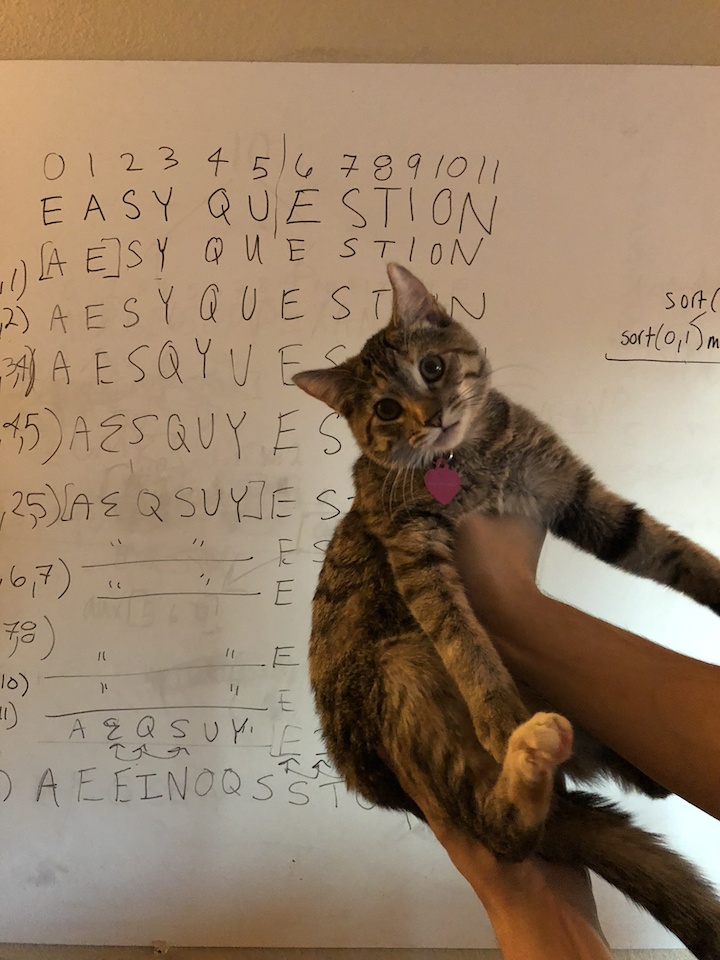 0 1 2 3 4 5 6 7 8 9 10 11
E A S Y Q U E S T I O N
[A E] S Y Q U E S T I O N
,1)
,2) A E S Y Q U E S T N
,34) A E S Q Y U E S
4,5) A E S Q U Y E S
,2,5) [A E Q S U Y] E S
" " E S
,6,7) " " E
78)
" " E
10) " " E
11)
A E Q S U Y [E
) A E E I N O Q S S T
sort(
sort(0,1) m